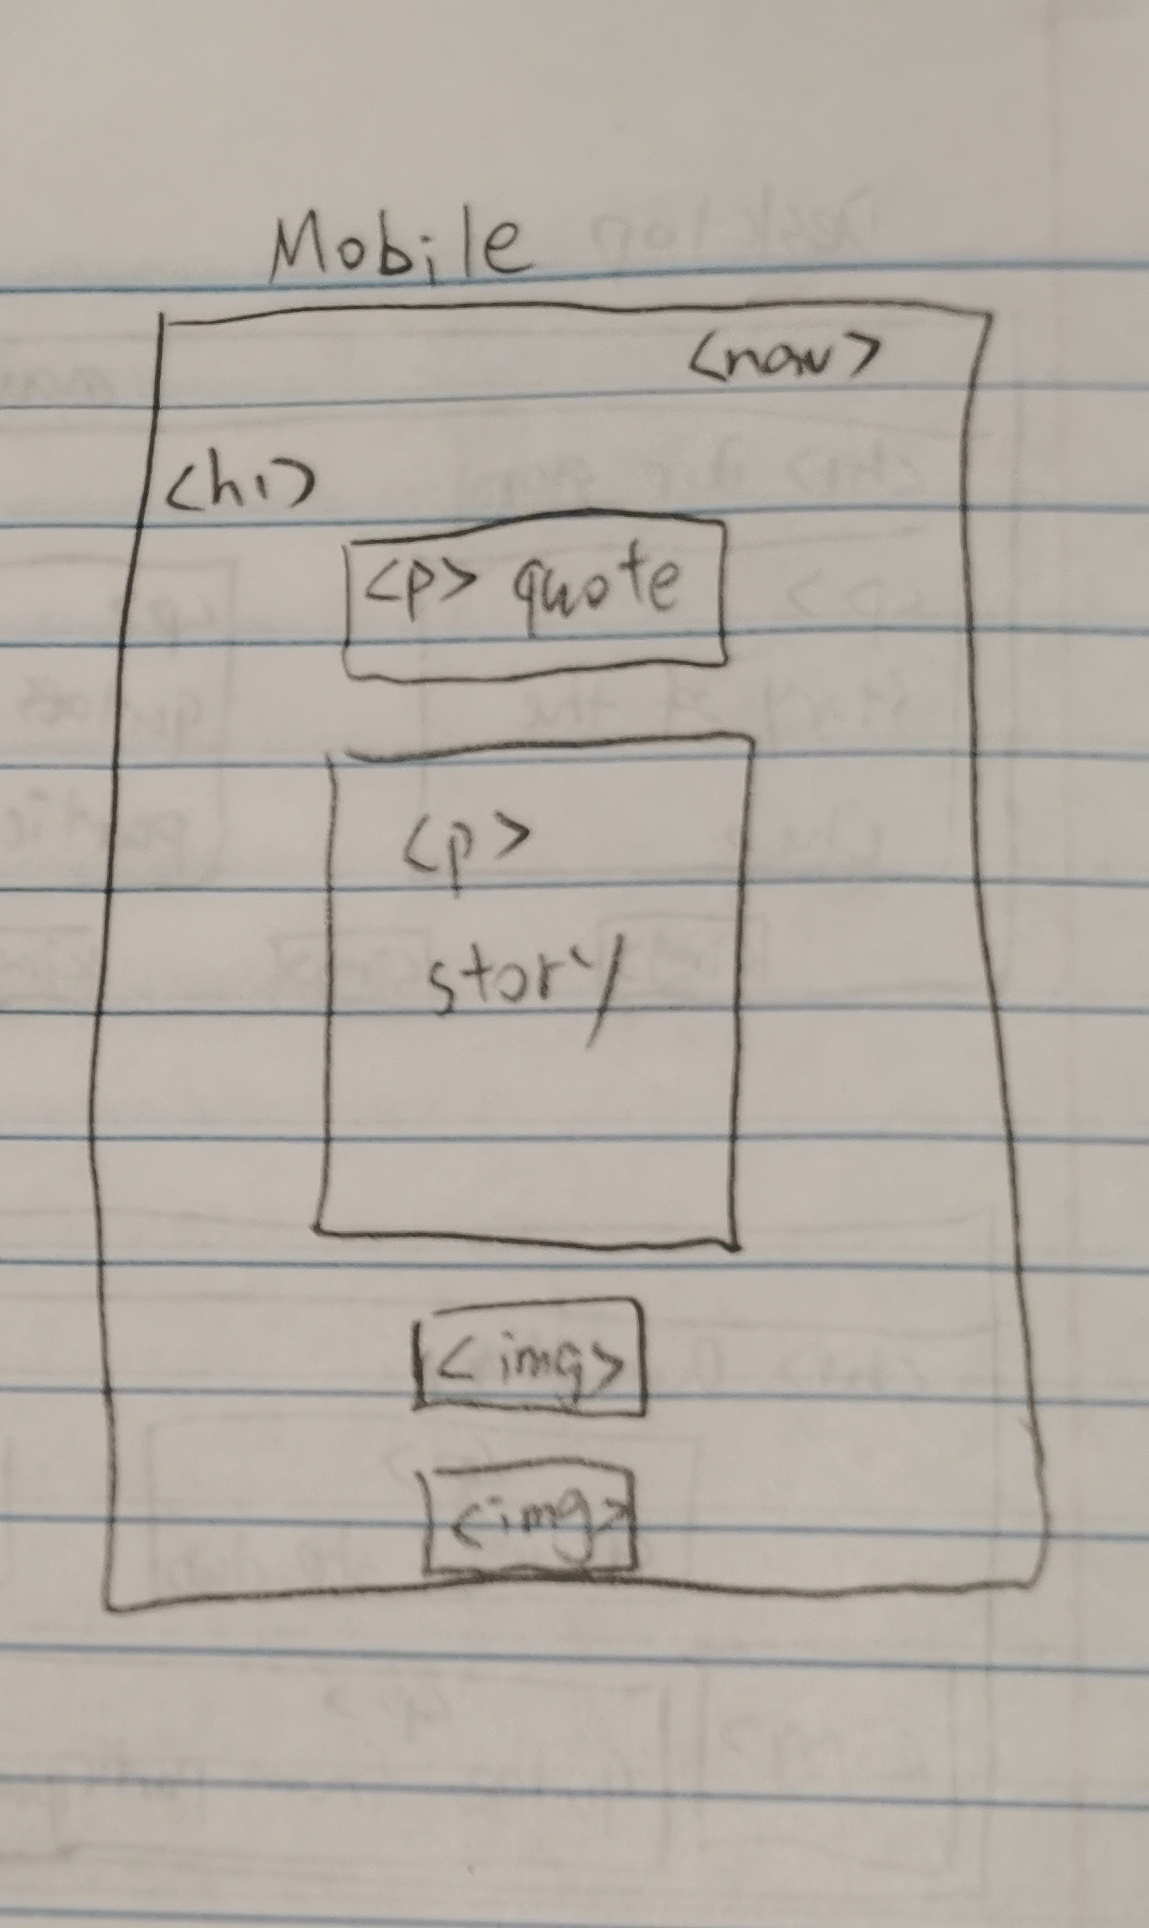 Mobile
<nav>
<h1>
<p> quote
<p>
story
<img>
<img>